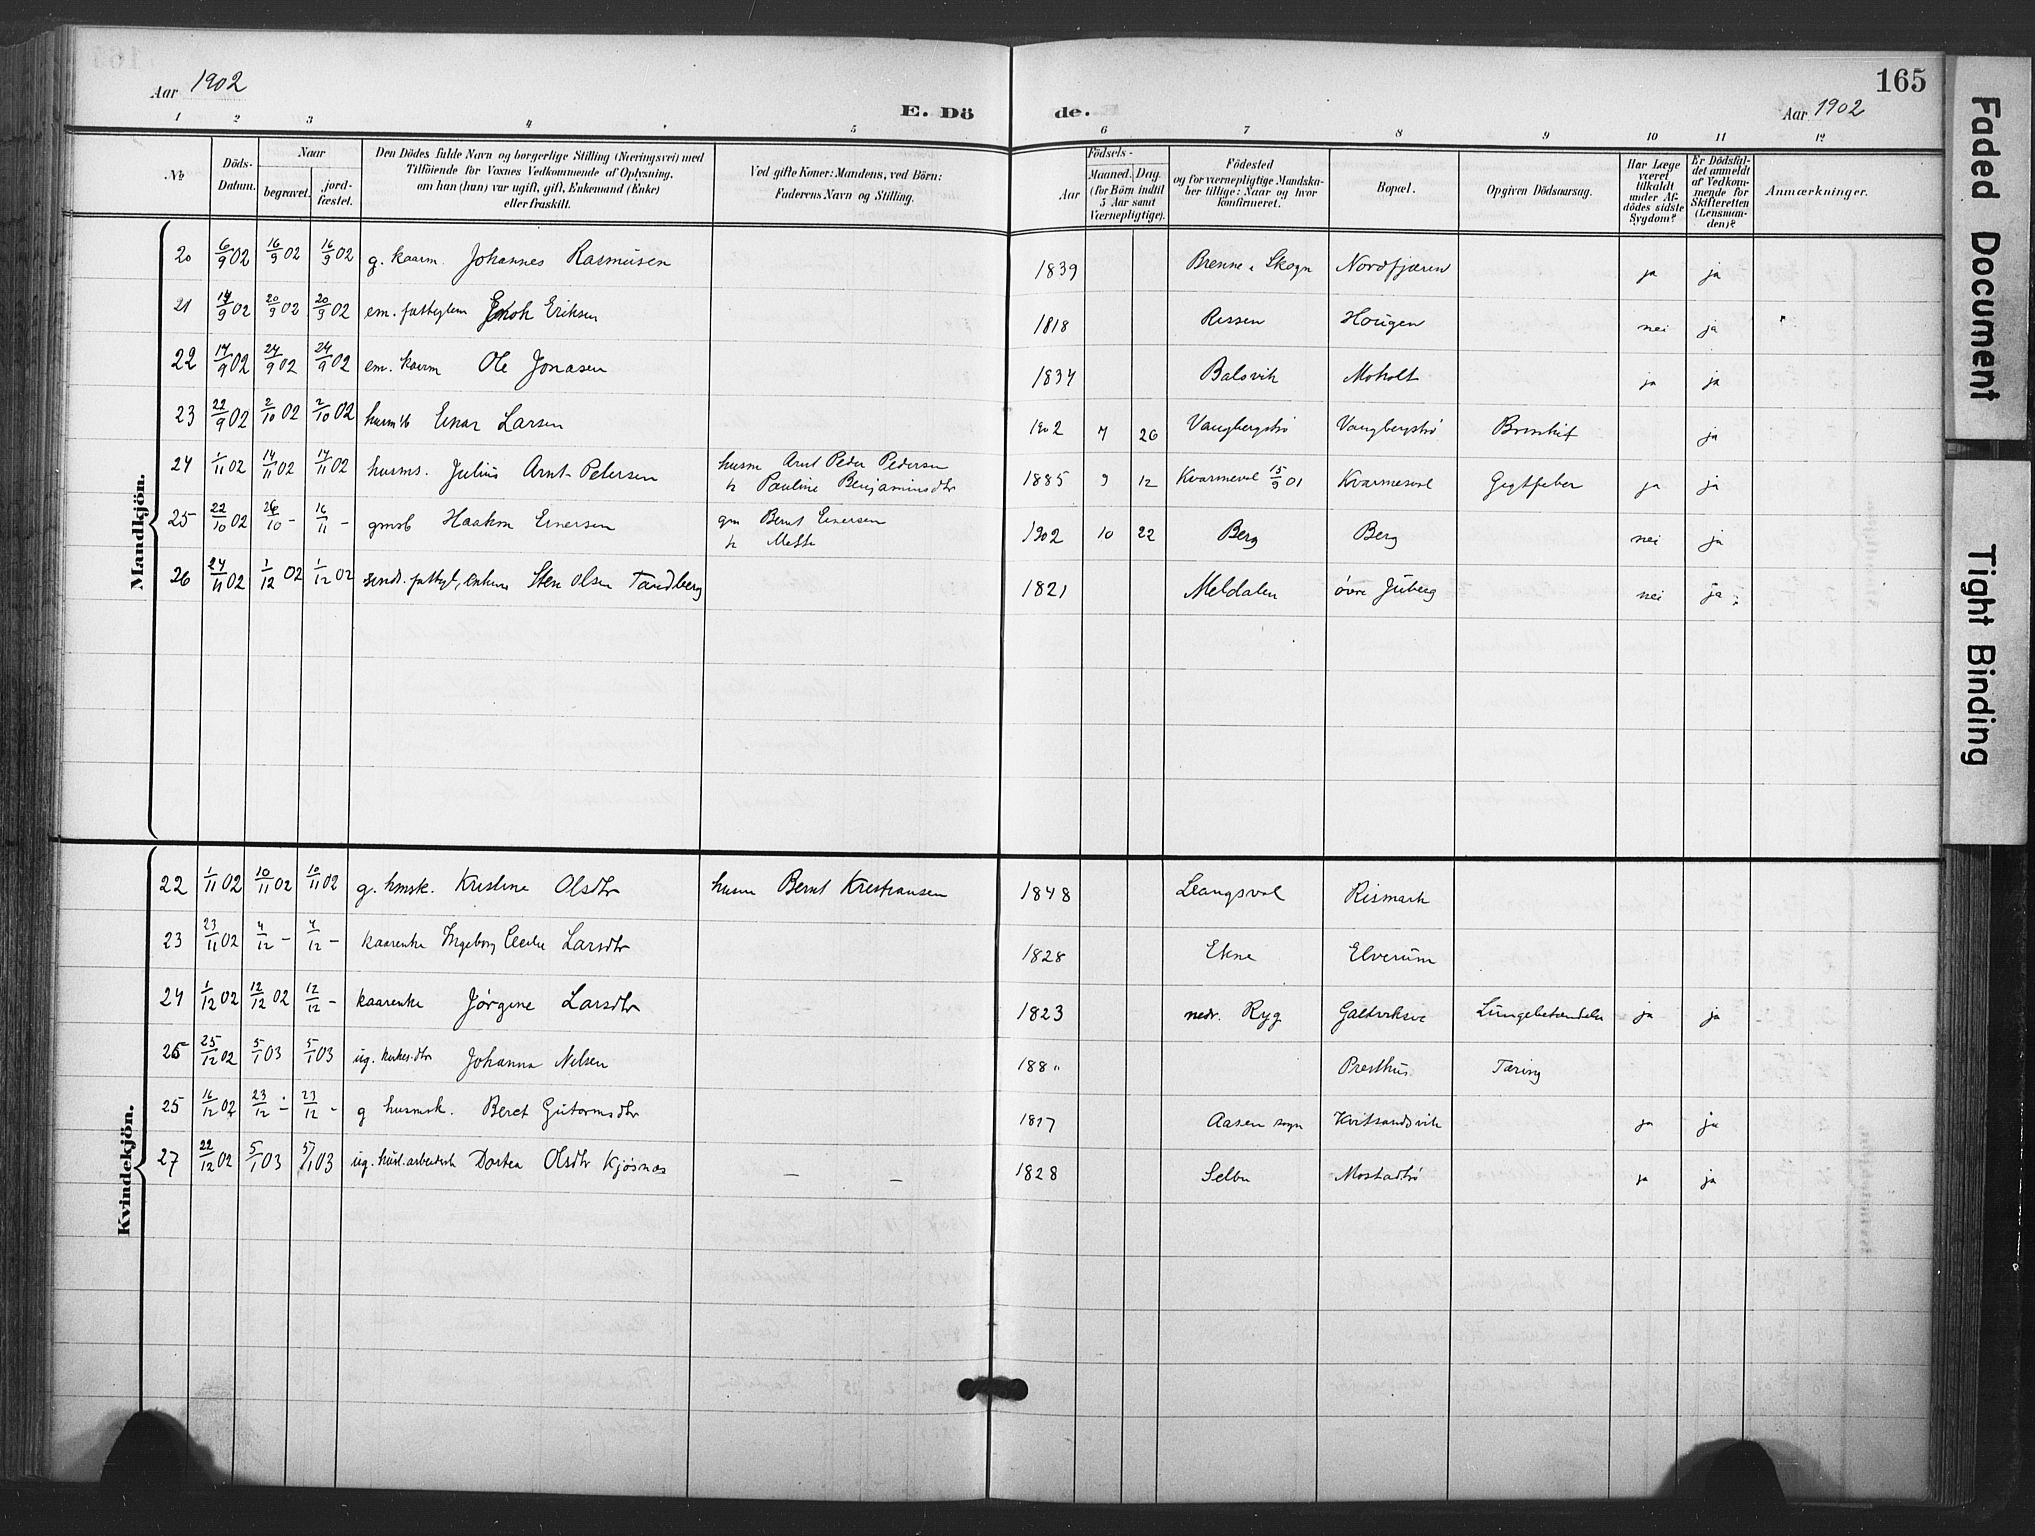 165
Aar 1902
E. Dö
de.
Aar 1902
1 2 3 4 5 6 7 8 9 10 11 12
No
Döds-Datum.
Naar
begravet.
jord-fæstet.
Den Dödes fulde Navn og borgerlige Stilling (Næringsvei) med
Tilföiende for Voxnes Vedkommende af Oplysning.
om han (hun) var ugift, gift, Enkemand (Enke)
eller fraskilt.
Ved gifte Koner: Mandens, ved Börn:
Faderens Navn og Stilling.
Födsels-
Aar
Maaned. Dag.
(for Börn indtil
5 Aar samt
Værnepligtige).
Födested
og for værnepligtige Mandska-
ber tillige: Naar og hvor
konfirmeret.
Bopæl.
Opgiven Dödsaarsag.
Har Læge
været
tilkaldt
under Af-
dödes sidste
Sygdom?
Er Dödsfal-
det anmeldt
af Vedkom-
mende for
Skifteretten
(Lensman-
den)?
Anmærkninger.
Mandkjön.
20 6/9 02 16/9 02 16/9 02 g. kaarm. Johannes Rasmusen 1839 Brenne i Skogn Nordfjæren ja ja
21 14/9 02 20/9 02 20/9 02 em. Eriksen 1818 Rissen Hougen nei ja
22 17/9 02 24/9 02 24/9 02 em. kaarm Ole Jonasen 1834 Balsvik Moholt ja ja
23 22/9 02 2/10 02 2/10 02 Einar Larsen 1902 7 26 Vangbergstrø Vangbergstrø ja
24 1/11 02 14/11 02 14/11 02 husms. Julius Arnt Petersen husm Arnt Peder Pedersen
h Pauline Benjaminsdtr 1885 9 12 Kvarmeval 15/9 01 Kvarmesval Gigtfeber ja ja
25 22/10 02 26/10 - 16/11 - gmsb Haakon Einersen gm Bernt Einersen
h Mette 1902 10 22 Berg Berg nei ja
26 24/11 02 1/12 02 1/12 02 Sten Olsen Tandberg 1821 Meldalen övre Juberg nei ja
Kvindekjön.
22 1/11 02 10/11 02 10/11 02 g. hmsk. Kristine Olsdtr husm Bernt Kristiansen 1848 Leangsval Rismark
23 23/11 02 4/12 - 4/12 - kaarenke Ingeborg Cecilie Larsdtr 1828 Ekne Elverum
24 1/12 02 12/12 02 12/12 - kaarenke Jørgine Larsdtr 1823 nedr. Ryg Lungebetændelse ja ja
26 25/12 02 5/1 03 5/1 03 ug. Johanna Nilsen 188" Presthus Tæring
25 16/12 02 23/12 - 23/12 - g husmsk. Beret Gutormsdtr 1817 Aasen sogn Kvitsandsvik ja ja
27 22/12 02 5/1 03 5/1 03 ug. Dortea Olsdtr Kjøsnæs - - 1828 Selbu Mostadtrø ja ja
Faded Document
Tight Binding